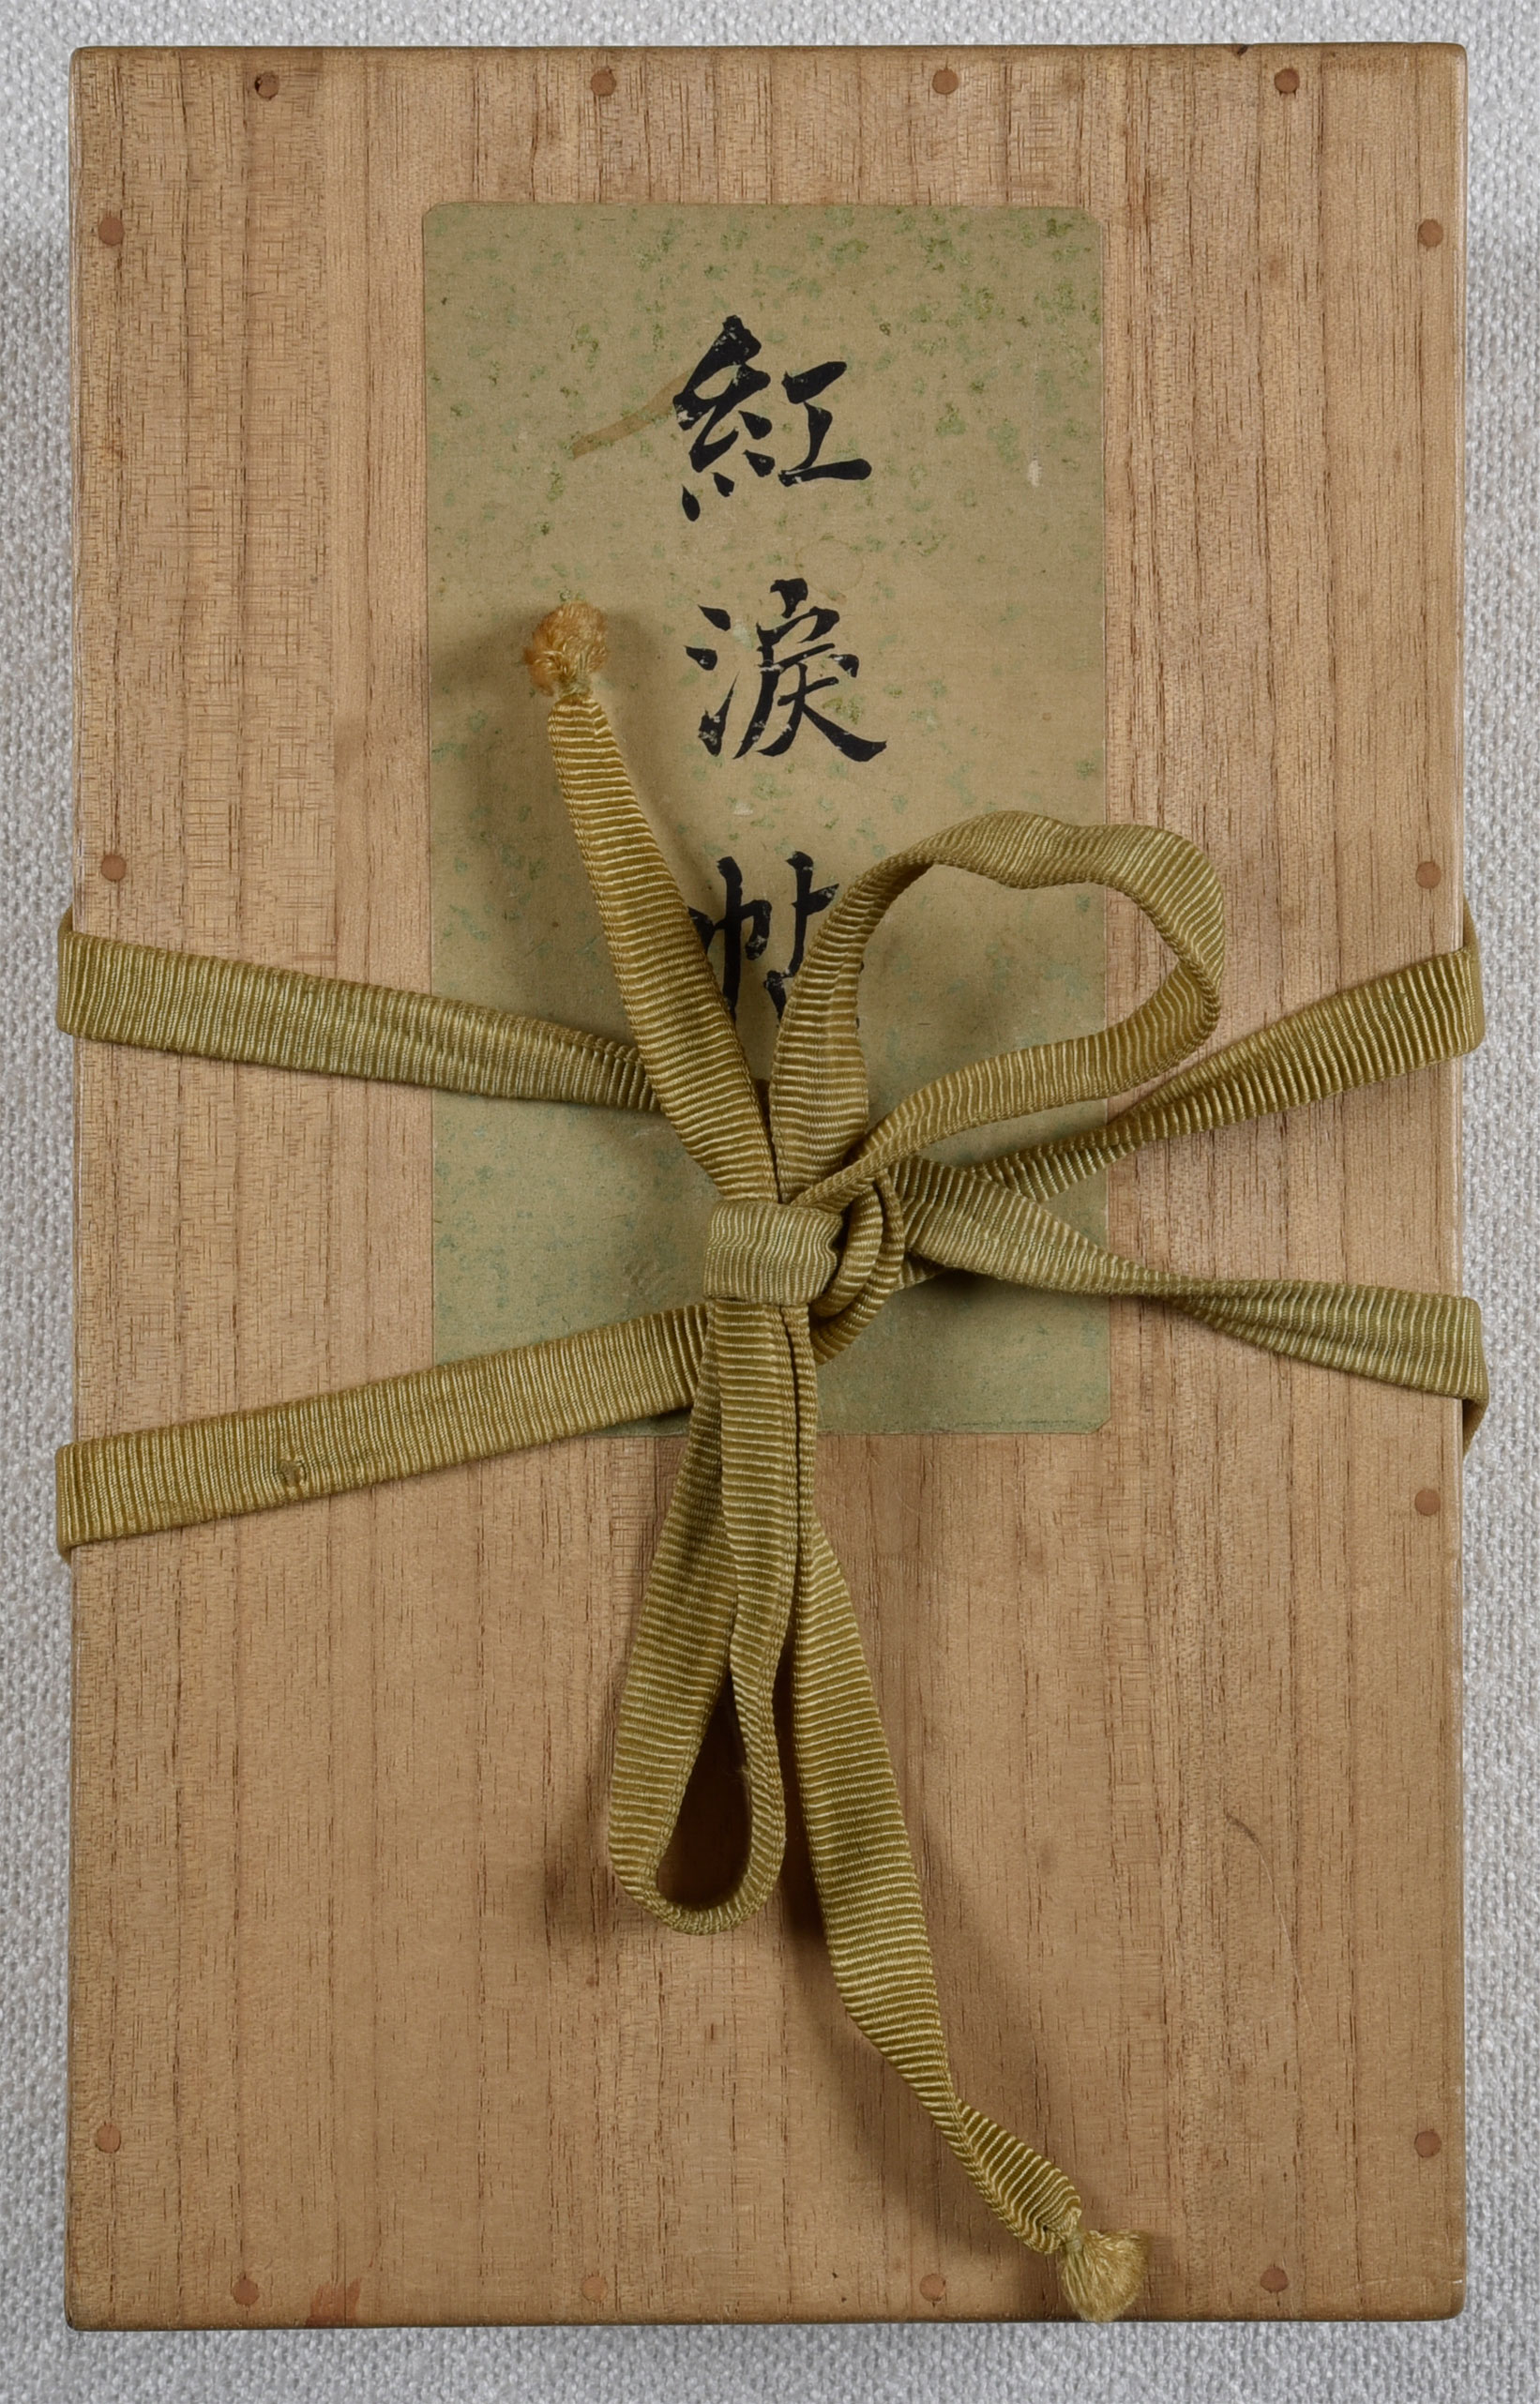 紅淚帖